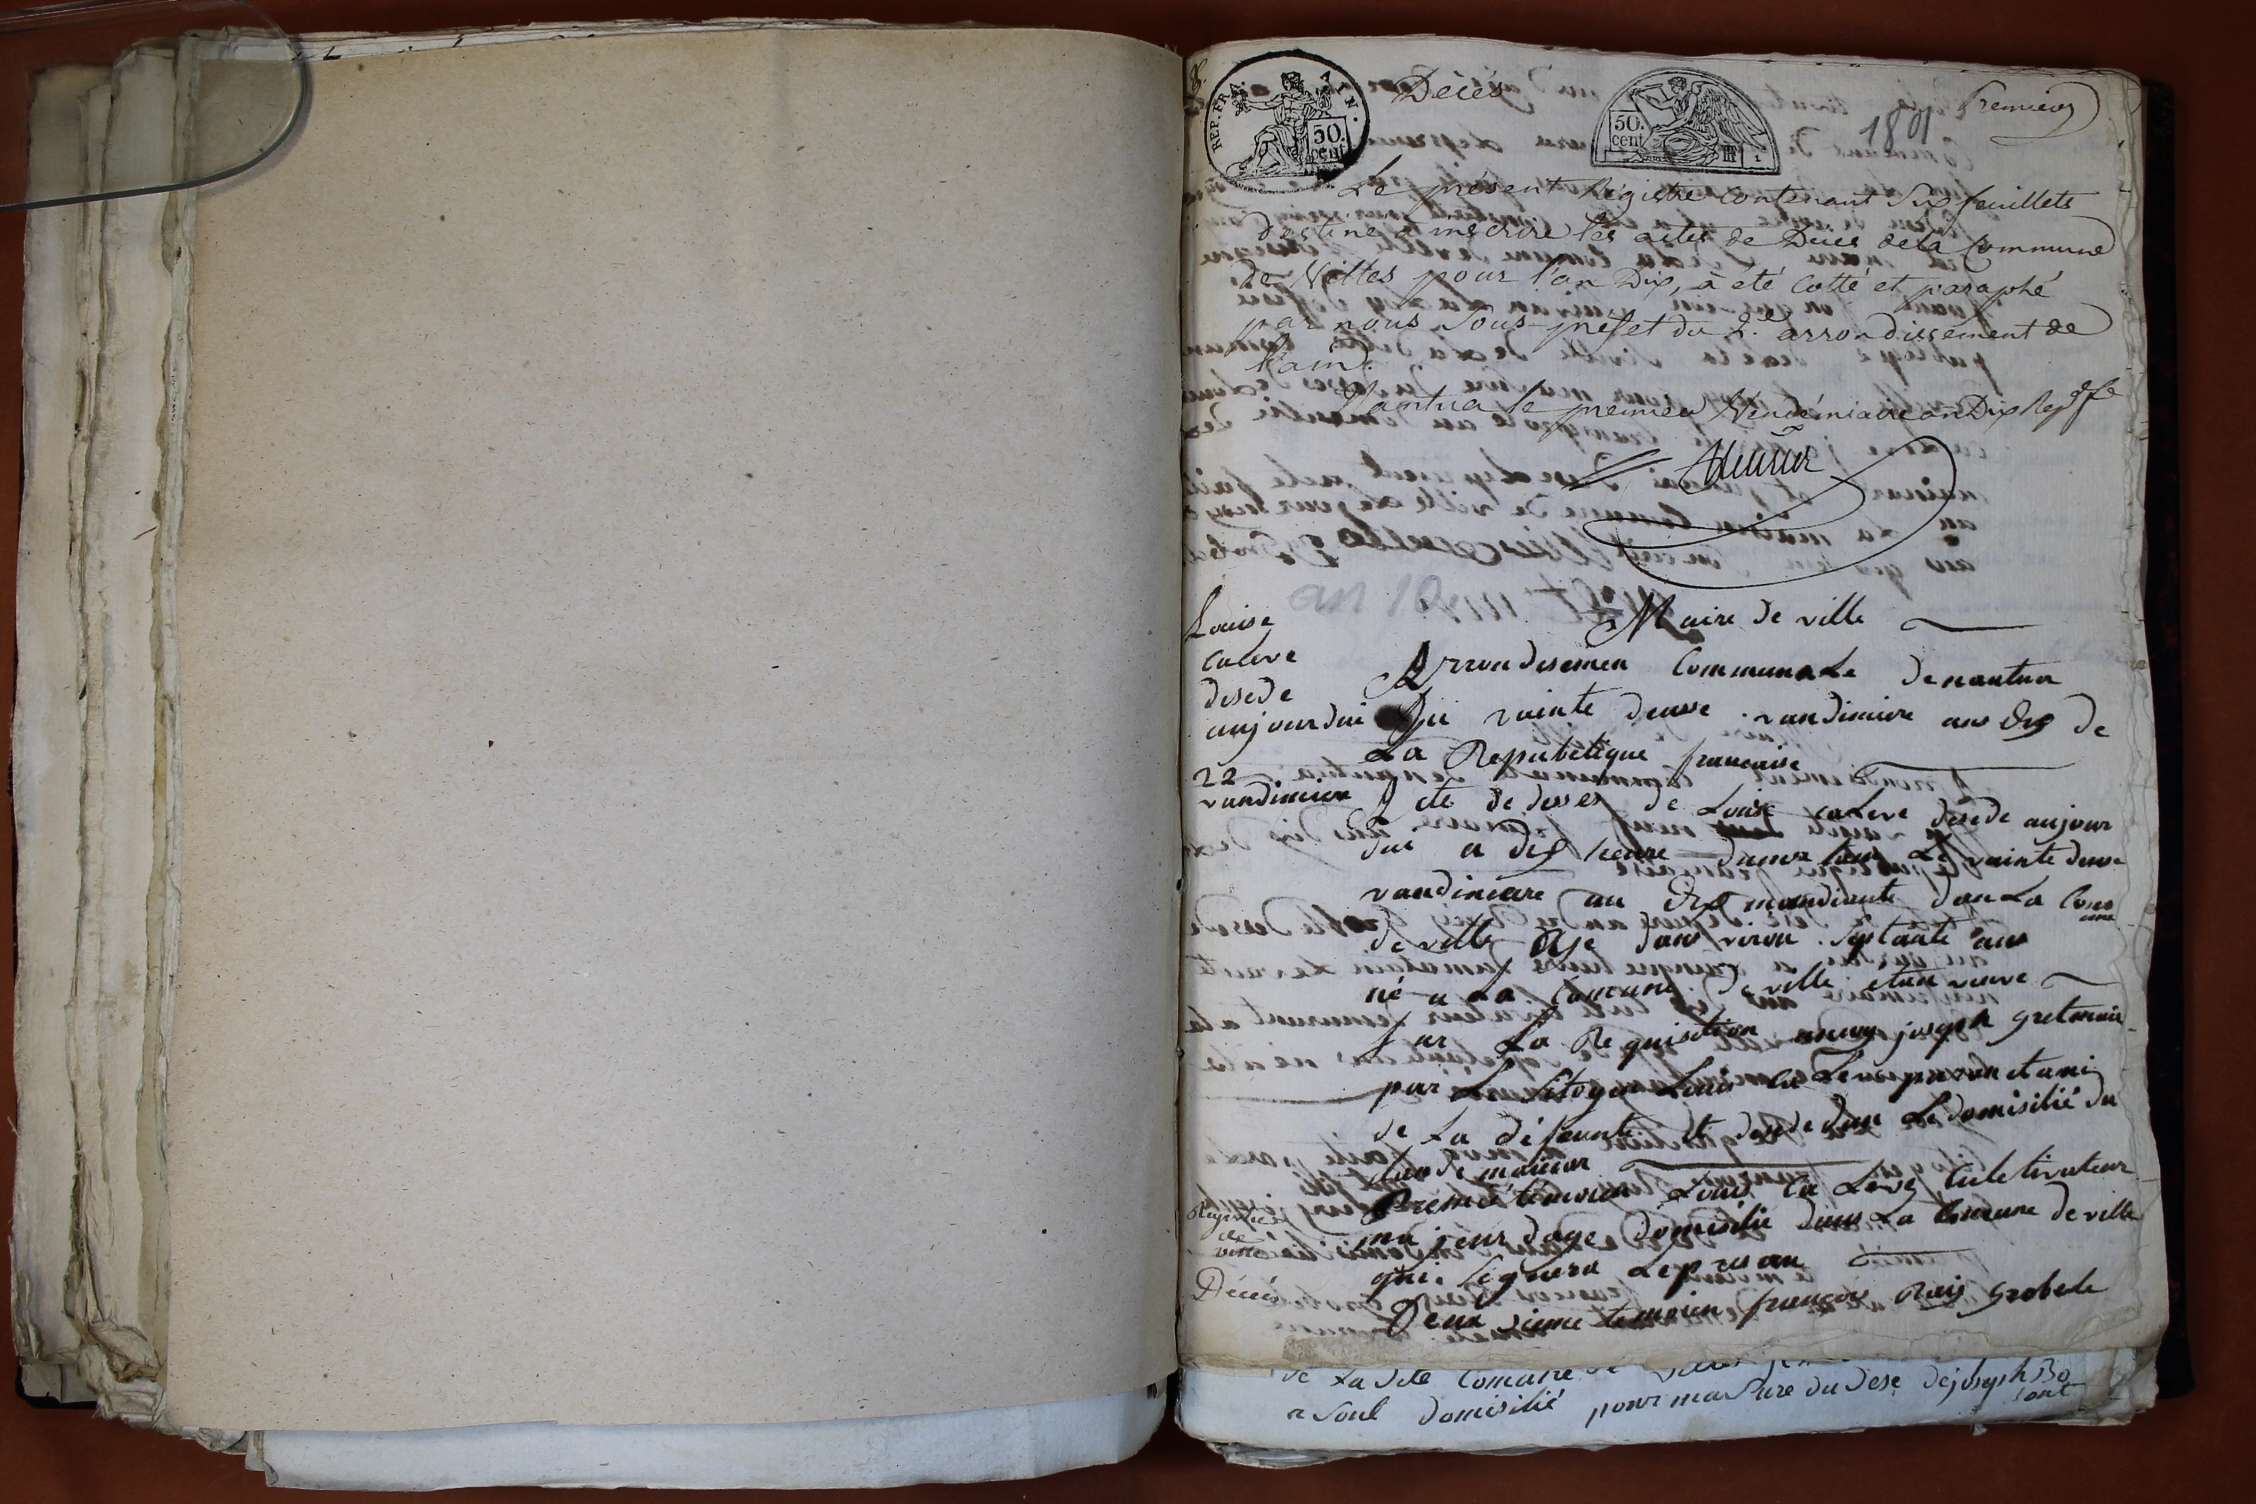 REP. FRA. AIN.
50. cent
Décès
50. cent
Premier
1801
Le présent Registre contenant Six feuillets
destiné a inscrire les actes de Décès de la Commune
de Villes pour l'an Dix, a été Cotté et paraphé
par nous Sous-prefet du arrondissement de
l'ain.
Nantua le premier Vendémiaire an Dix
an 10
Maire de ville
Louise
calere
desede
aujourdui
22
vandimiere
Arrondisemen Communale denantua
Du vainte deusse vandimiere ans dix de
La Republique francaise
Acte de desses de Louise calere desede aujour
dui a dix heure le vainte deusse
vandimiere an dix mandiante dan La Com
une
de ville age danviron septante ans
né a La Comune de ville etan veuve
sur La Requisition joseph
par Le Sitoyen Louis calere et ami
de La défeunte Le domisilié du
Premié témoien Louis ca Lere culetivateur
majeur dage domisilié dans La Comune de ville
qui Signera
Deux sieme temoien francois Rais Grobele
Registre
de
ville
Décès
de La dite Comune de
domisilié pour du dese dejoseph